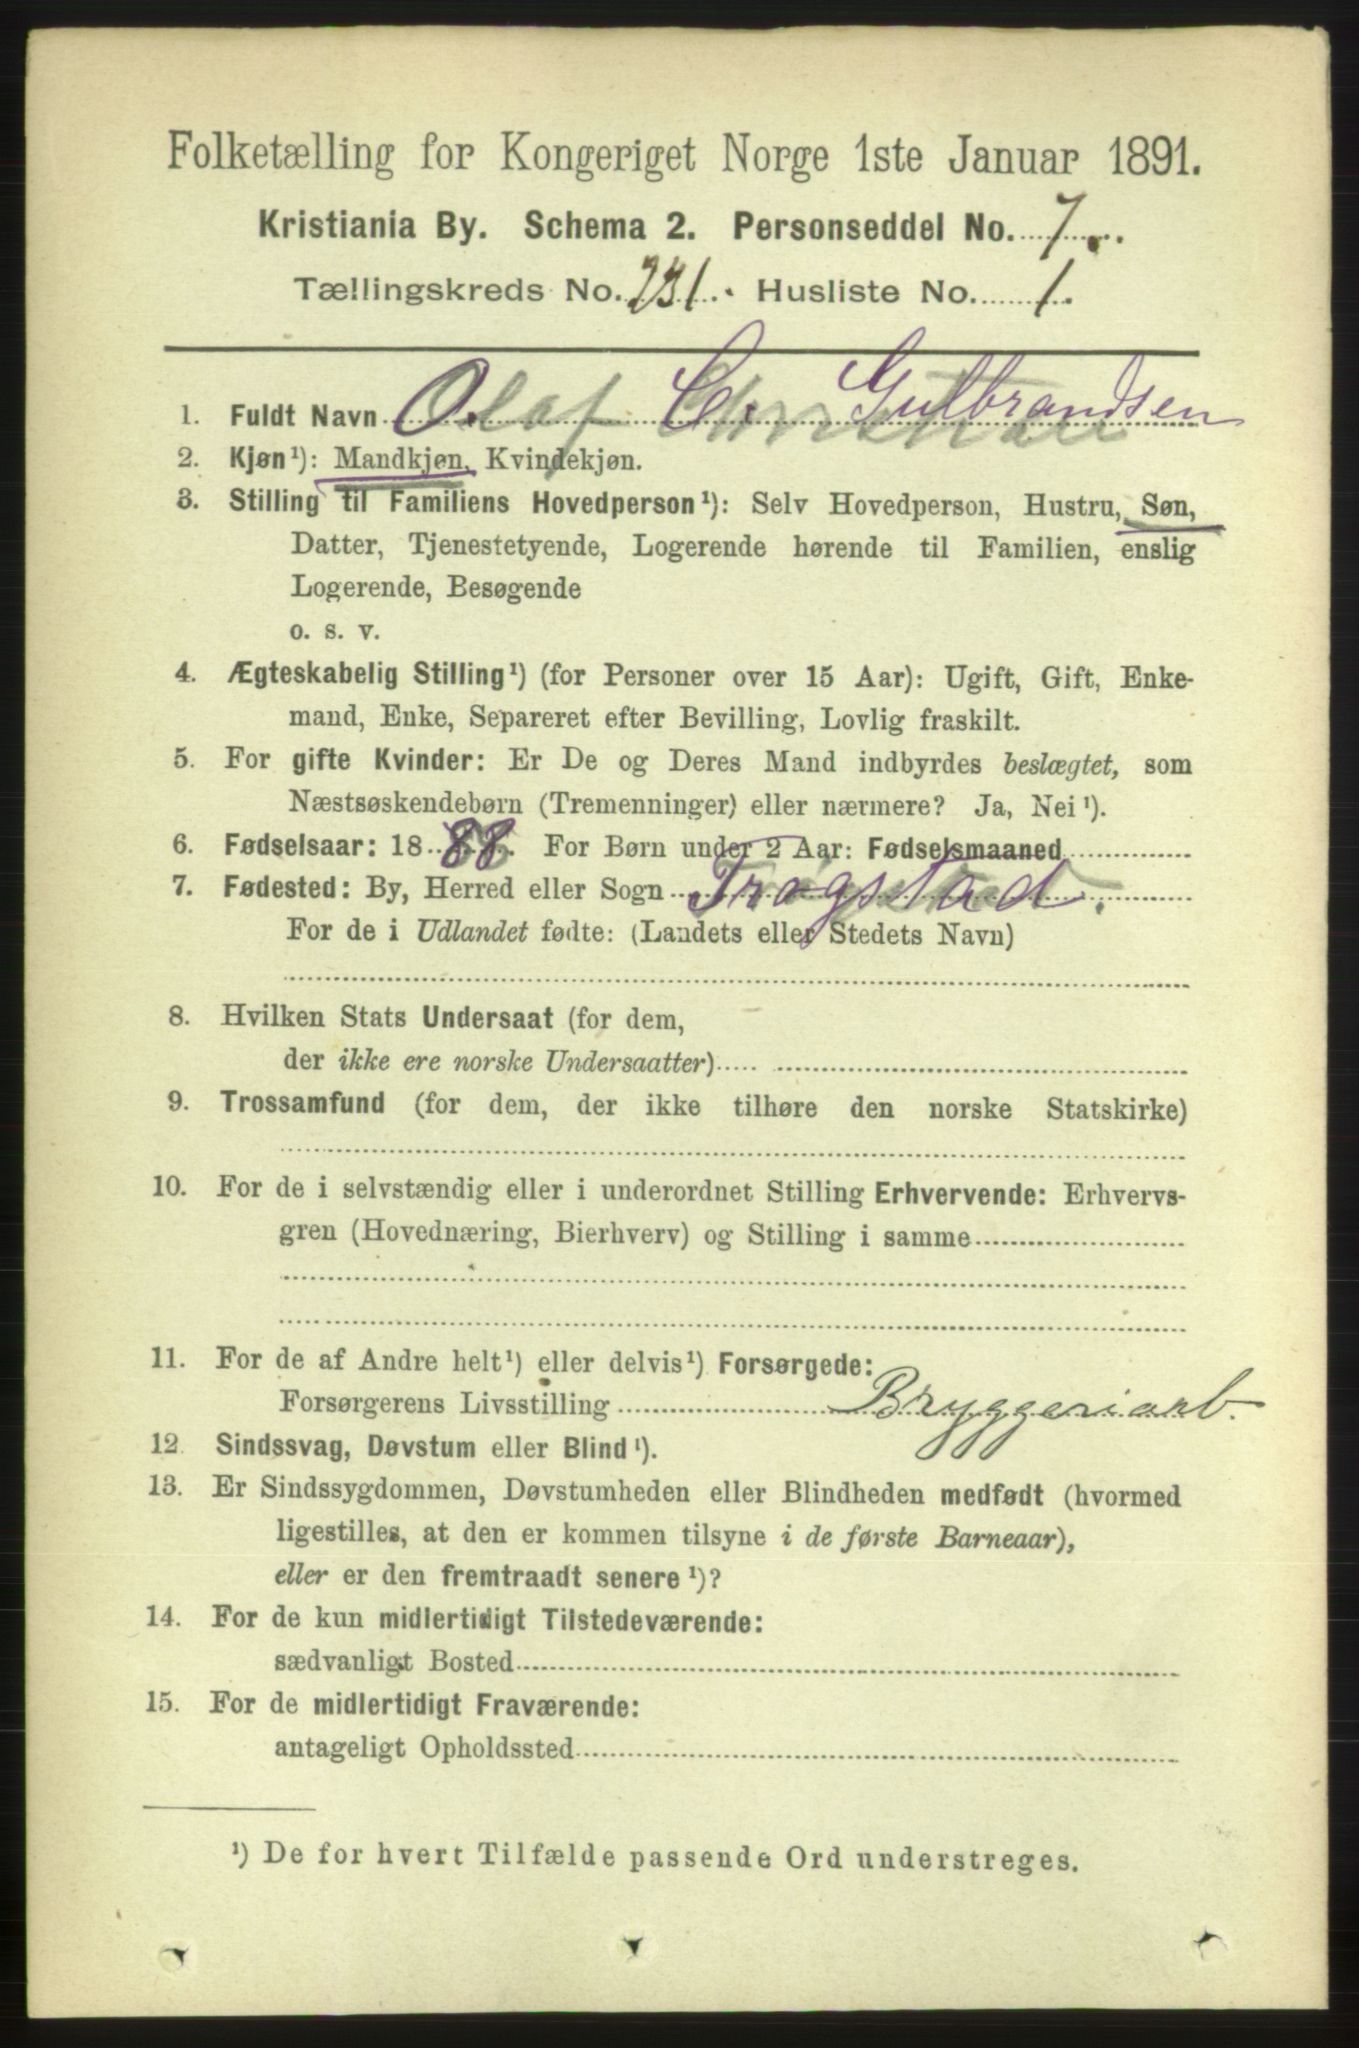 Folketælling for Kongeriget Norge 1ste Januar 1891.
Kristiania By. Schema 2. Personseddel No. 7.
Tællingskreds No. 231. Husliste No. 1.
1. Fuldt Navn Olaf Chr. Gulbrandsen
2. Kjøn¹): Mandkjøn, Kvindekjøn.
3. Stilling til Familiens Hovedperson¹): Selv Hovedperson, Hustru, Søn,
Datter, Tjenestetyende, Logerende hørende til Familien, enslig
Logerende, Besøgende
o. s. v.
4. Ægteskabelig Stilling¹) (for Personer over 15 Aar): Ugift, Gift, Enke-
mand, Enke, Separeret efter Bevilling, Lovlig fraskilt.
5. For gifte Kvinder: Er De og Deres Mand indbyrdes beslægtet, som
Næstsøskendebørn (Tremenninger) eller nærmere? Ja, Nei¹).
6. Fødselsaar: 1888. For Børn under 2 Aar: Fødselsmaaned
7. Fødested: By, Herred eller Sogn Trøgstad.
For de i Udlandet fødte: (Landets eller Stedets Navn)
8. Hvilken Stats Undersaat (for dem,
der ikke ere norske Undersaatter)
9. Trossamfund (for dem, der ikke tilhøre den norske Statskirke)
10. For de i selvstændig eller i underordnet Stilling Erhvervende: Erhvervs-
gren (Hovednæring, Bierhverv) og Stilling i samme
11. For de af Andre helt¹) eller delvis¹) Forsørgede:
Forsørgerens Livsstilling Bryggeriarb.
12 Sindssvag, Døvstum eller Blind¹).
13. Er Sindssygdommen, Døvstumheden eller Blindheden medfødt (hvormed
ligestilles, at den er kommen tilsyne i de første Barneaar),
eller er den fremtraadt senere¹)?
14. For de kun midlertidigt Tilstedeværende:
sædvanligt Bosted
15. For de midlertidigt Fraværende:
antageligt Opholdssted
¹) De for hvert Tilfælde passende Ord understreges.